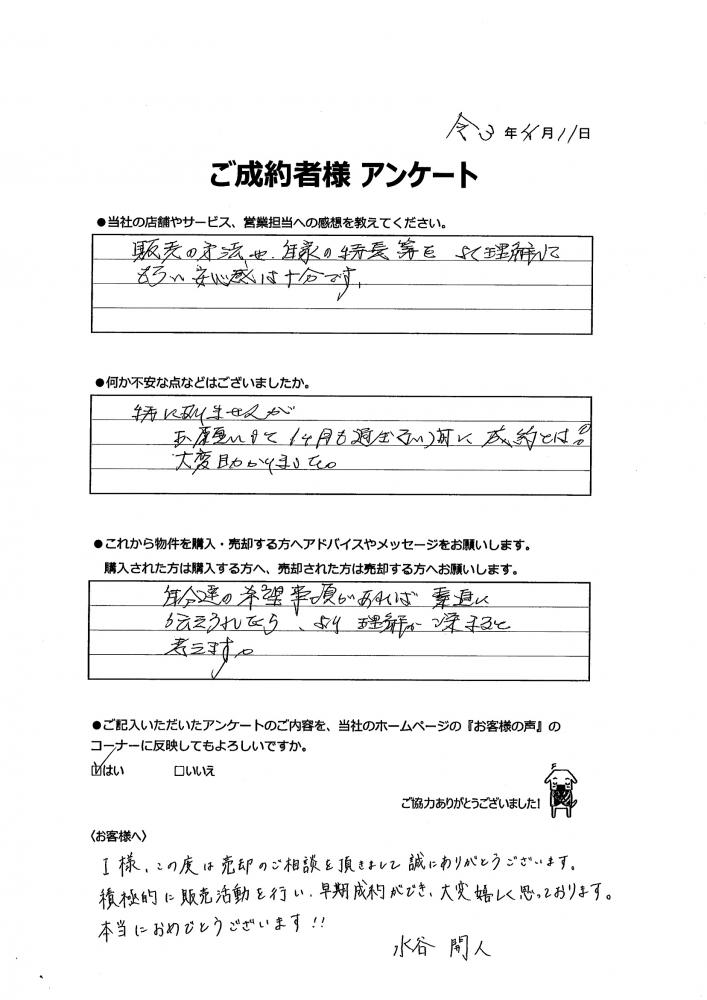 令3年4月11日
ご成約者様 アンケート
●当社の店舗やサービス、営業担当への感想を教えてください。
販売の方法や、自家の特長等を よく理解して
もらい安心感は十分です。
●何か不安な点などはございましたか。
特に有りませんが
お願いして1ヶ月も過ぎない前に 成約とは!?
大変助かりました。
●これから物件を購入・売却する方へアドバイスやメッセージをお願いします。
購入された方は購入する方へ、売却された方は売却する方へお願いします。
自分達の希望事項があれば 素直に
伝えられたら、より理解が深まると
考えます。
●ご記入いただいたアンケートのご内容を、当社のホームページの『お客様の声』の
コーナーに反映してもよろしいですか。
☑はい □いいえ
ご協力ありがとうございました!
〈お客様へ〉
I様、この度は売却のご相談を頂きまして誠にありがとうございます。
積極的に販売活動を行い、早期成約ができ、大変嬉しく思っております。
本当におめでとうございます!!
水谷 開人